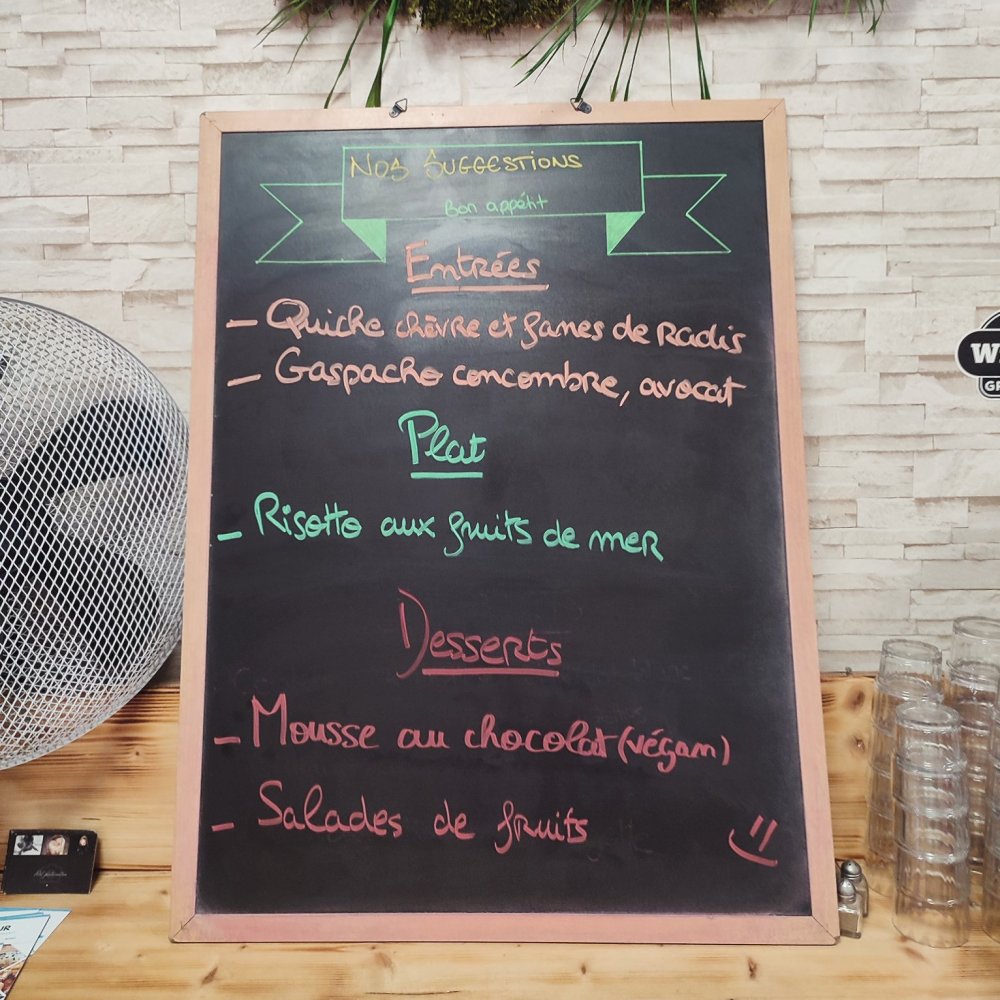 Nos Suggestions
Bon appétit
Entrées
- Quiche chèvre et fanes de Radis
- Gaspacho concombre, avocat
Plat
- Risotto aux fruits de mer
Desserts
- Mousse au chocolat (végan)
- Salades de fruits